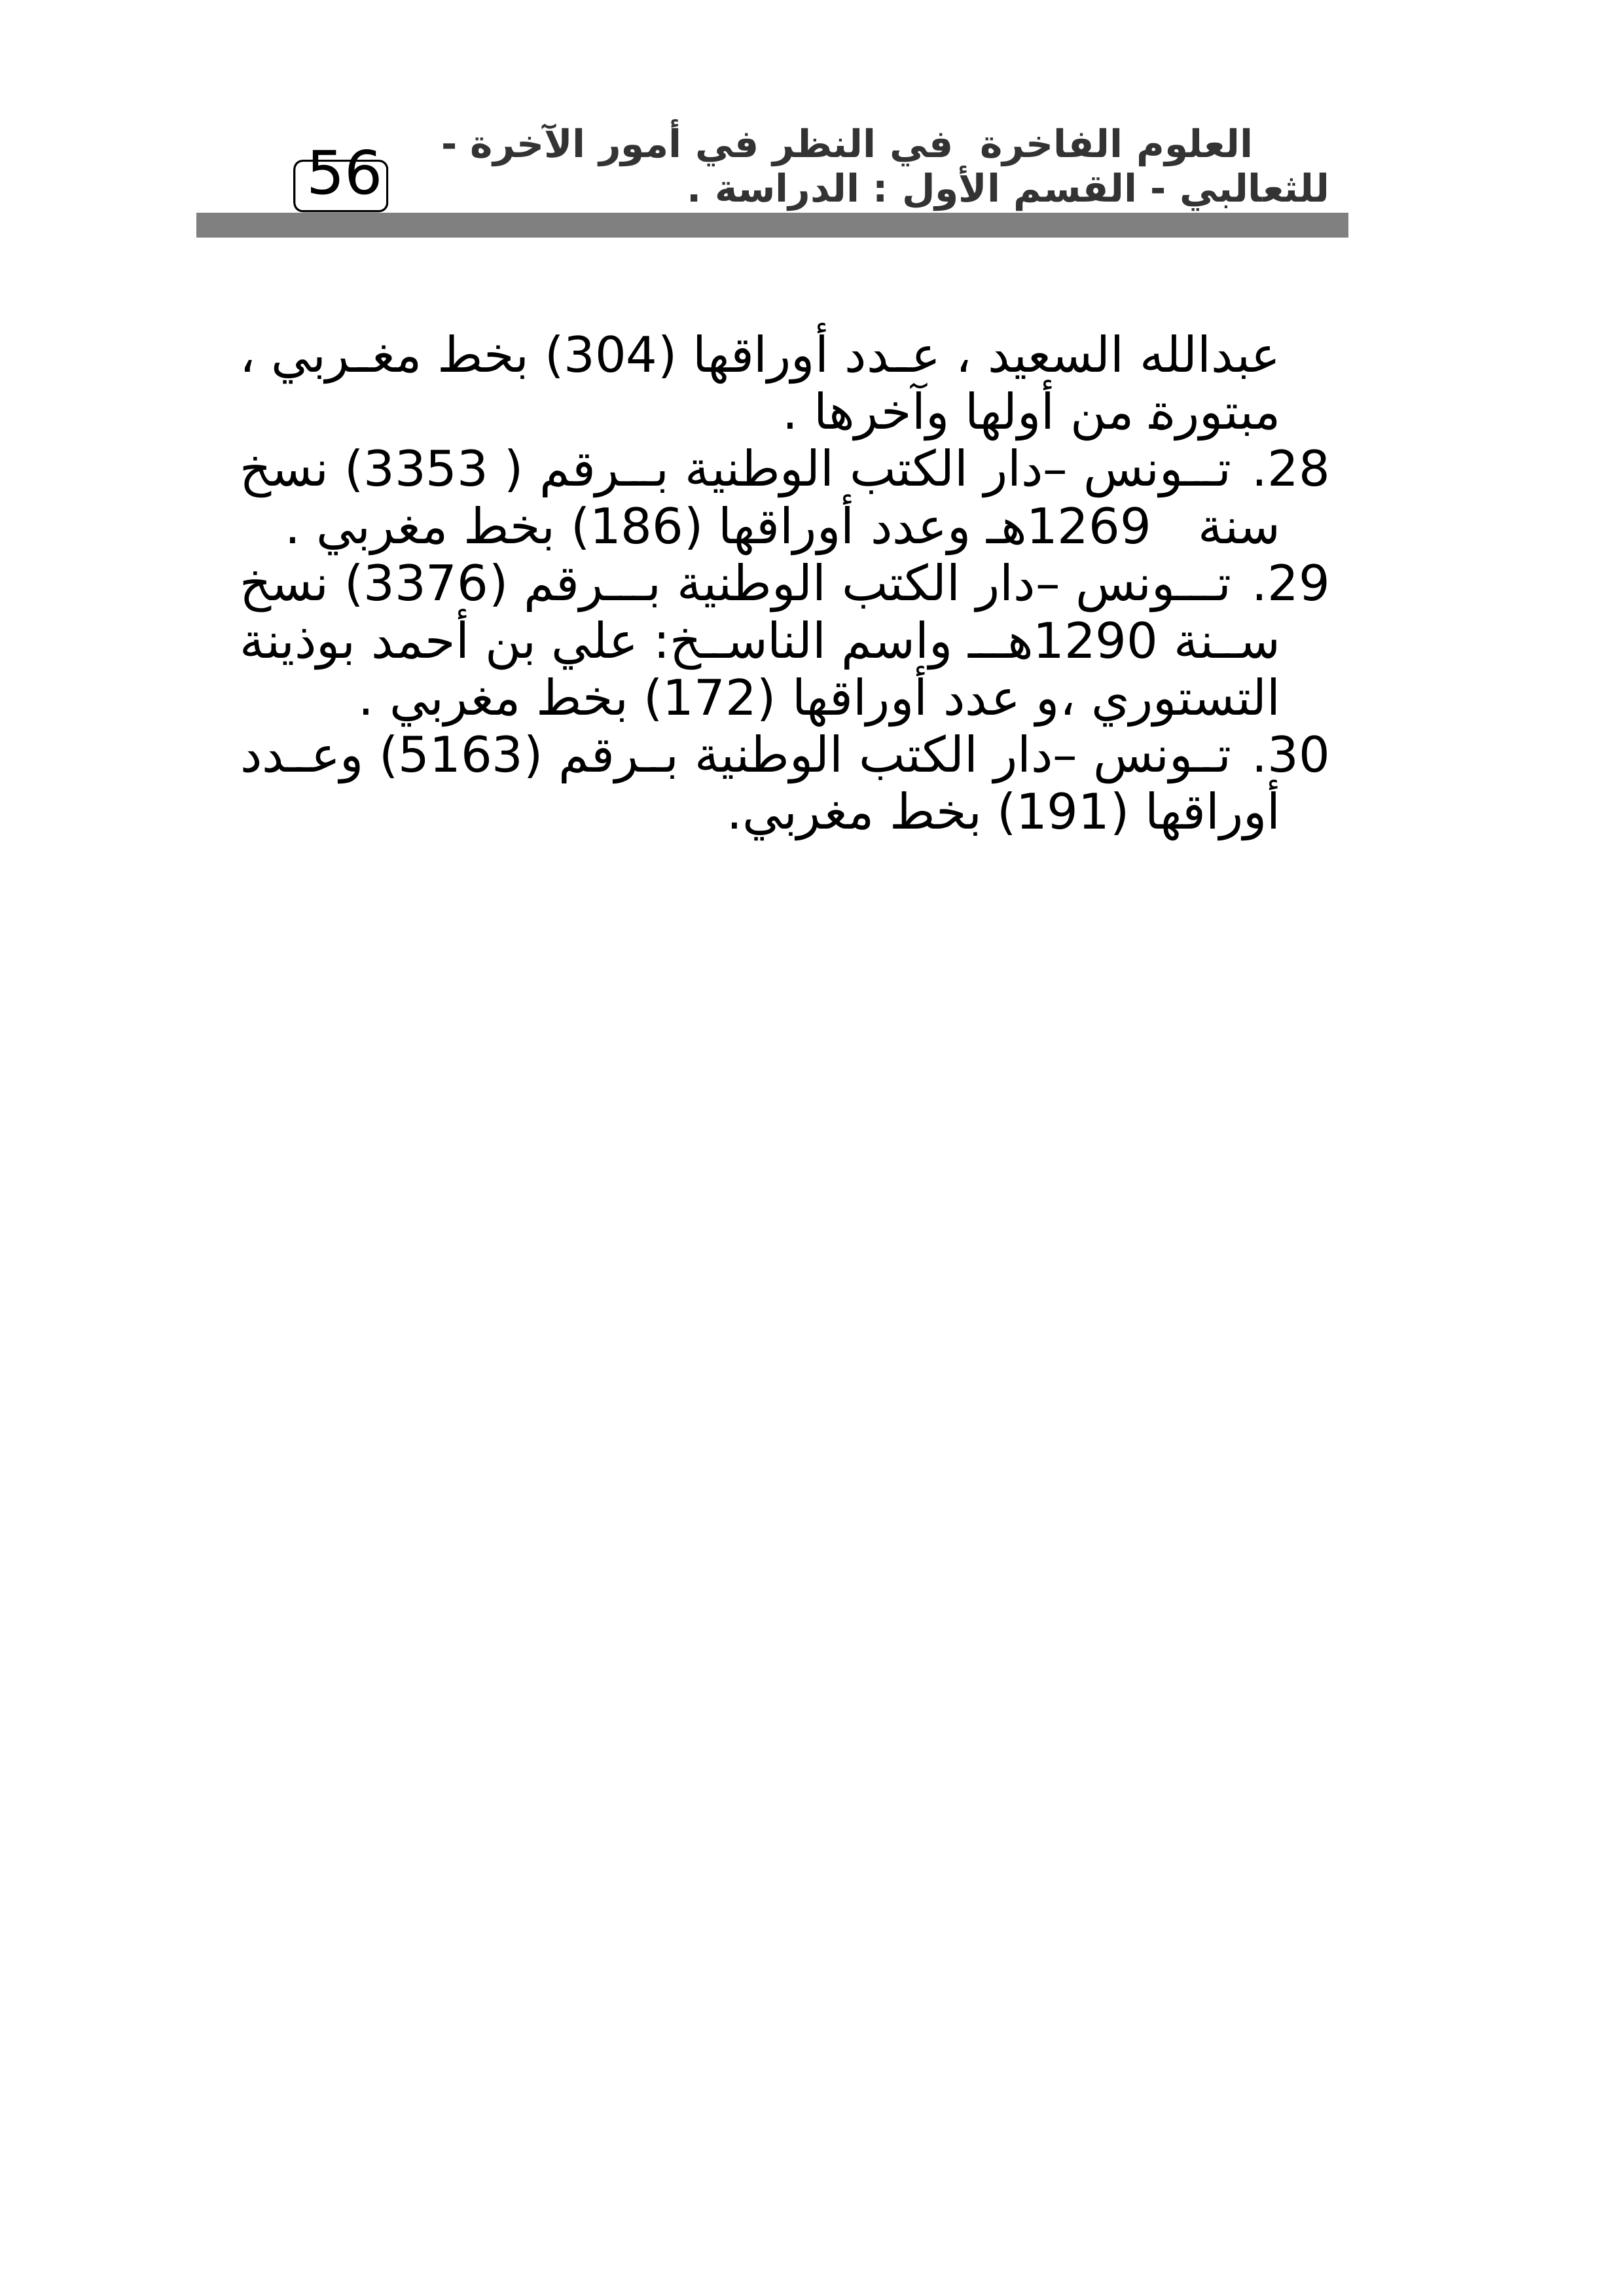 العلوم الفاخرة في النظر في أمور الآخرة -
للثعالبي - القسم الأول : الدراسة .
56
عبدالله السعيد ، عـدد أوراقها (304) بخط مغـربي ،
مبتورة من أولها وآخرها .
28. تــونس –دار الكتب الوطنية بــرقم ( 3353) نسخ
سنة 1269هـ وعدد أوراقها (186) بخط مغربي .
29. تـــونس –دار الكتب الوطنية بـــرقم (3376) نسخ
ســنة 1290هـــ واسم الناســخ: علي بن أحمد بوذينة
التستوري ،و عدد أوراقها (172) بخط مغربي .
30. تــونس –دار الكتب الوطنية بــرقم (5163) وعــدد
أوراقها (191) بخط مغربي.